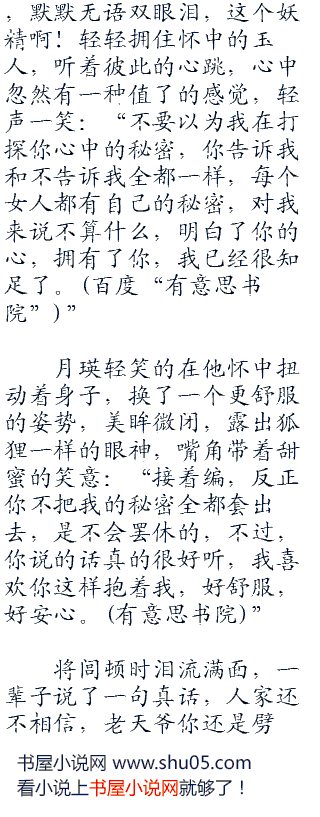 ，默默无语双眼泪，这个妖
精啊！轻轻拥住怀中的玉
人，听着彼此的心跳，心中
忽然有一种值了的感觉，轻
声一笑：“不要以为我在打
探你心中的秘密，你告诉我
和不告诉我全都一样，每个
女人都有自己的秘密，对我
来说不算什么，明白了你的
心，拥有了你，我已经很知
足了。(百度“有意思书
院”)”
月瑛轻笑的在他怀中扭
动着身子，换了一个更舒服
的姿势，美眸微闭，露出狐
狸一样的眼神，嘴角带着甜
蜜的笑意：“接着编，反正
你不把我的秘密全都套出
去，是不会罢休的，不过，
你说的话真的很好听，我喜
欢你这样抱着我，好舒服，
好安心。(有意思书院)”
将闾顿时泪流满面，一
辈子说了一句真话，人家还
不相信，老天爷你还是劈
书屋小说网 www.shu05.com
看小说上书屋小说网就够了！